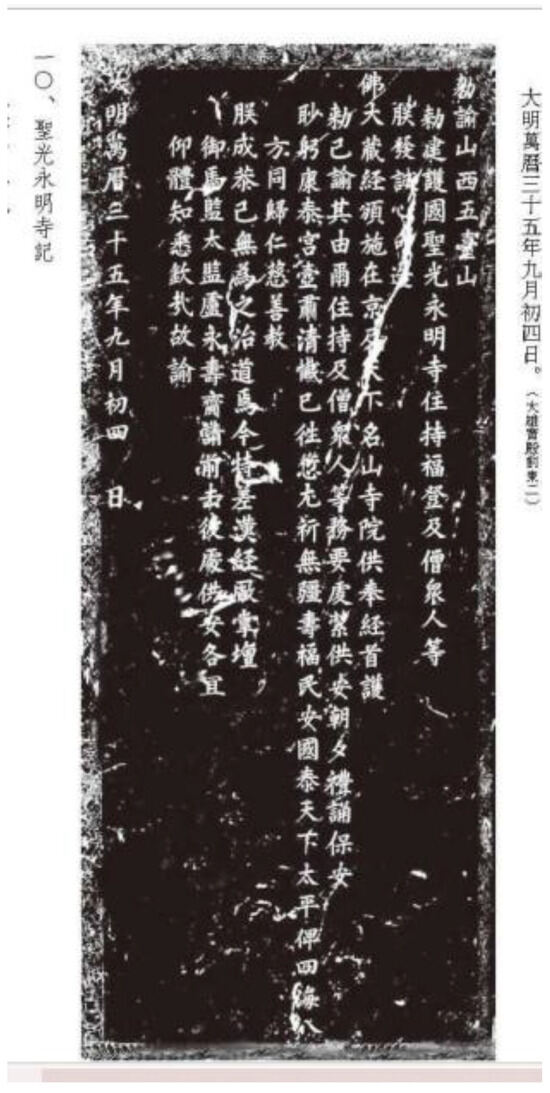 大明萬曆三十五年九月初四日。(大雄寶殿前東二)
勅諭山西五臺山
勅建護國聖光永明寺住持福登及僧衆人等
朕發誠心印造
佛大藏經頒施在京及天下名山寺院供奉經首護
勅已諭其由爾住持及僧衆人等務要虔潔供安朝夕禮誦保安
眇躬康泰宮壼肅清懺已往愆尤祈無疆壽福民安國泰天下太平俾四海八
方同歸仁慈善教
朕成恭己無為之治道焉今特差漢經廠掌壇
御馬監太監盧永壽齎請前去彼處供安各宜
仰體知悉欽哉故諭
大明萬曆三十五年九月初四 日
一〇、聖光永明寺記